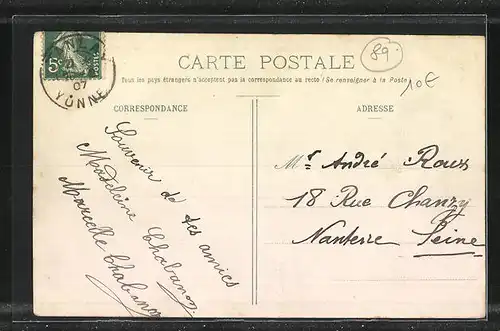 5c
07
YONNE
CARTE POSTALE
89
10€
Tous les pays étrangers n'acceptent pas la correspondance au recto (Se renseigner à la Poste)
CORRESPONDANCE
ADRESSE
Souvenir de tes amies
Madeleine Chabanoy
Marcelle Chabanoy
Mr. André Roux
18 Rue Chanzy
Nanterre Seine